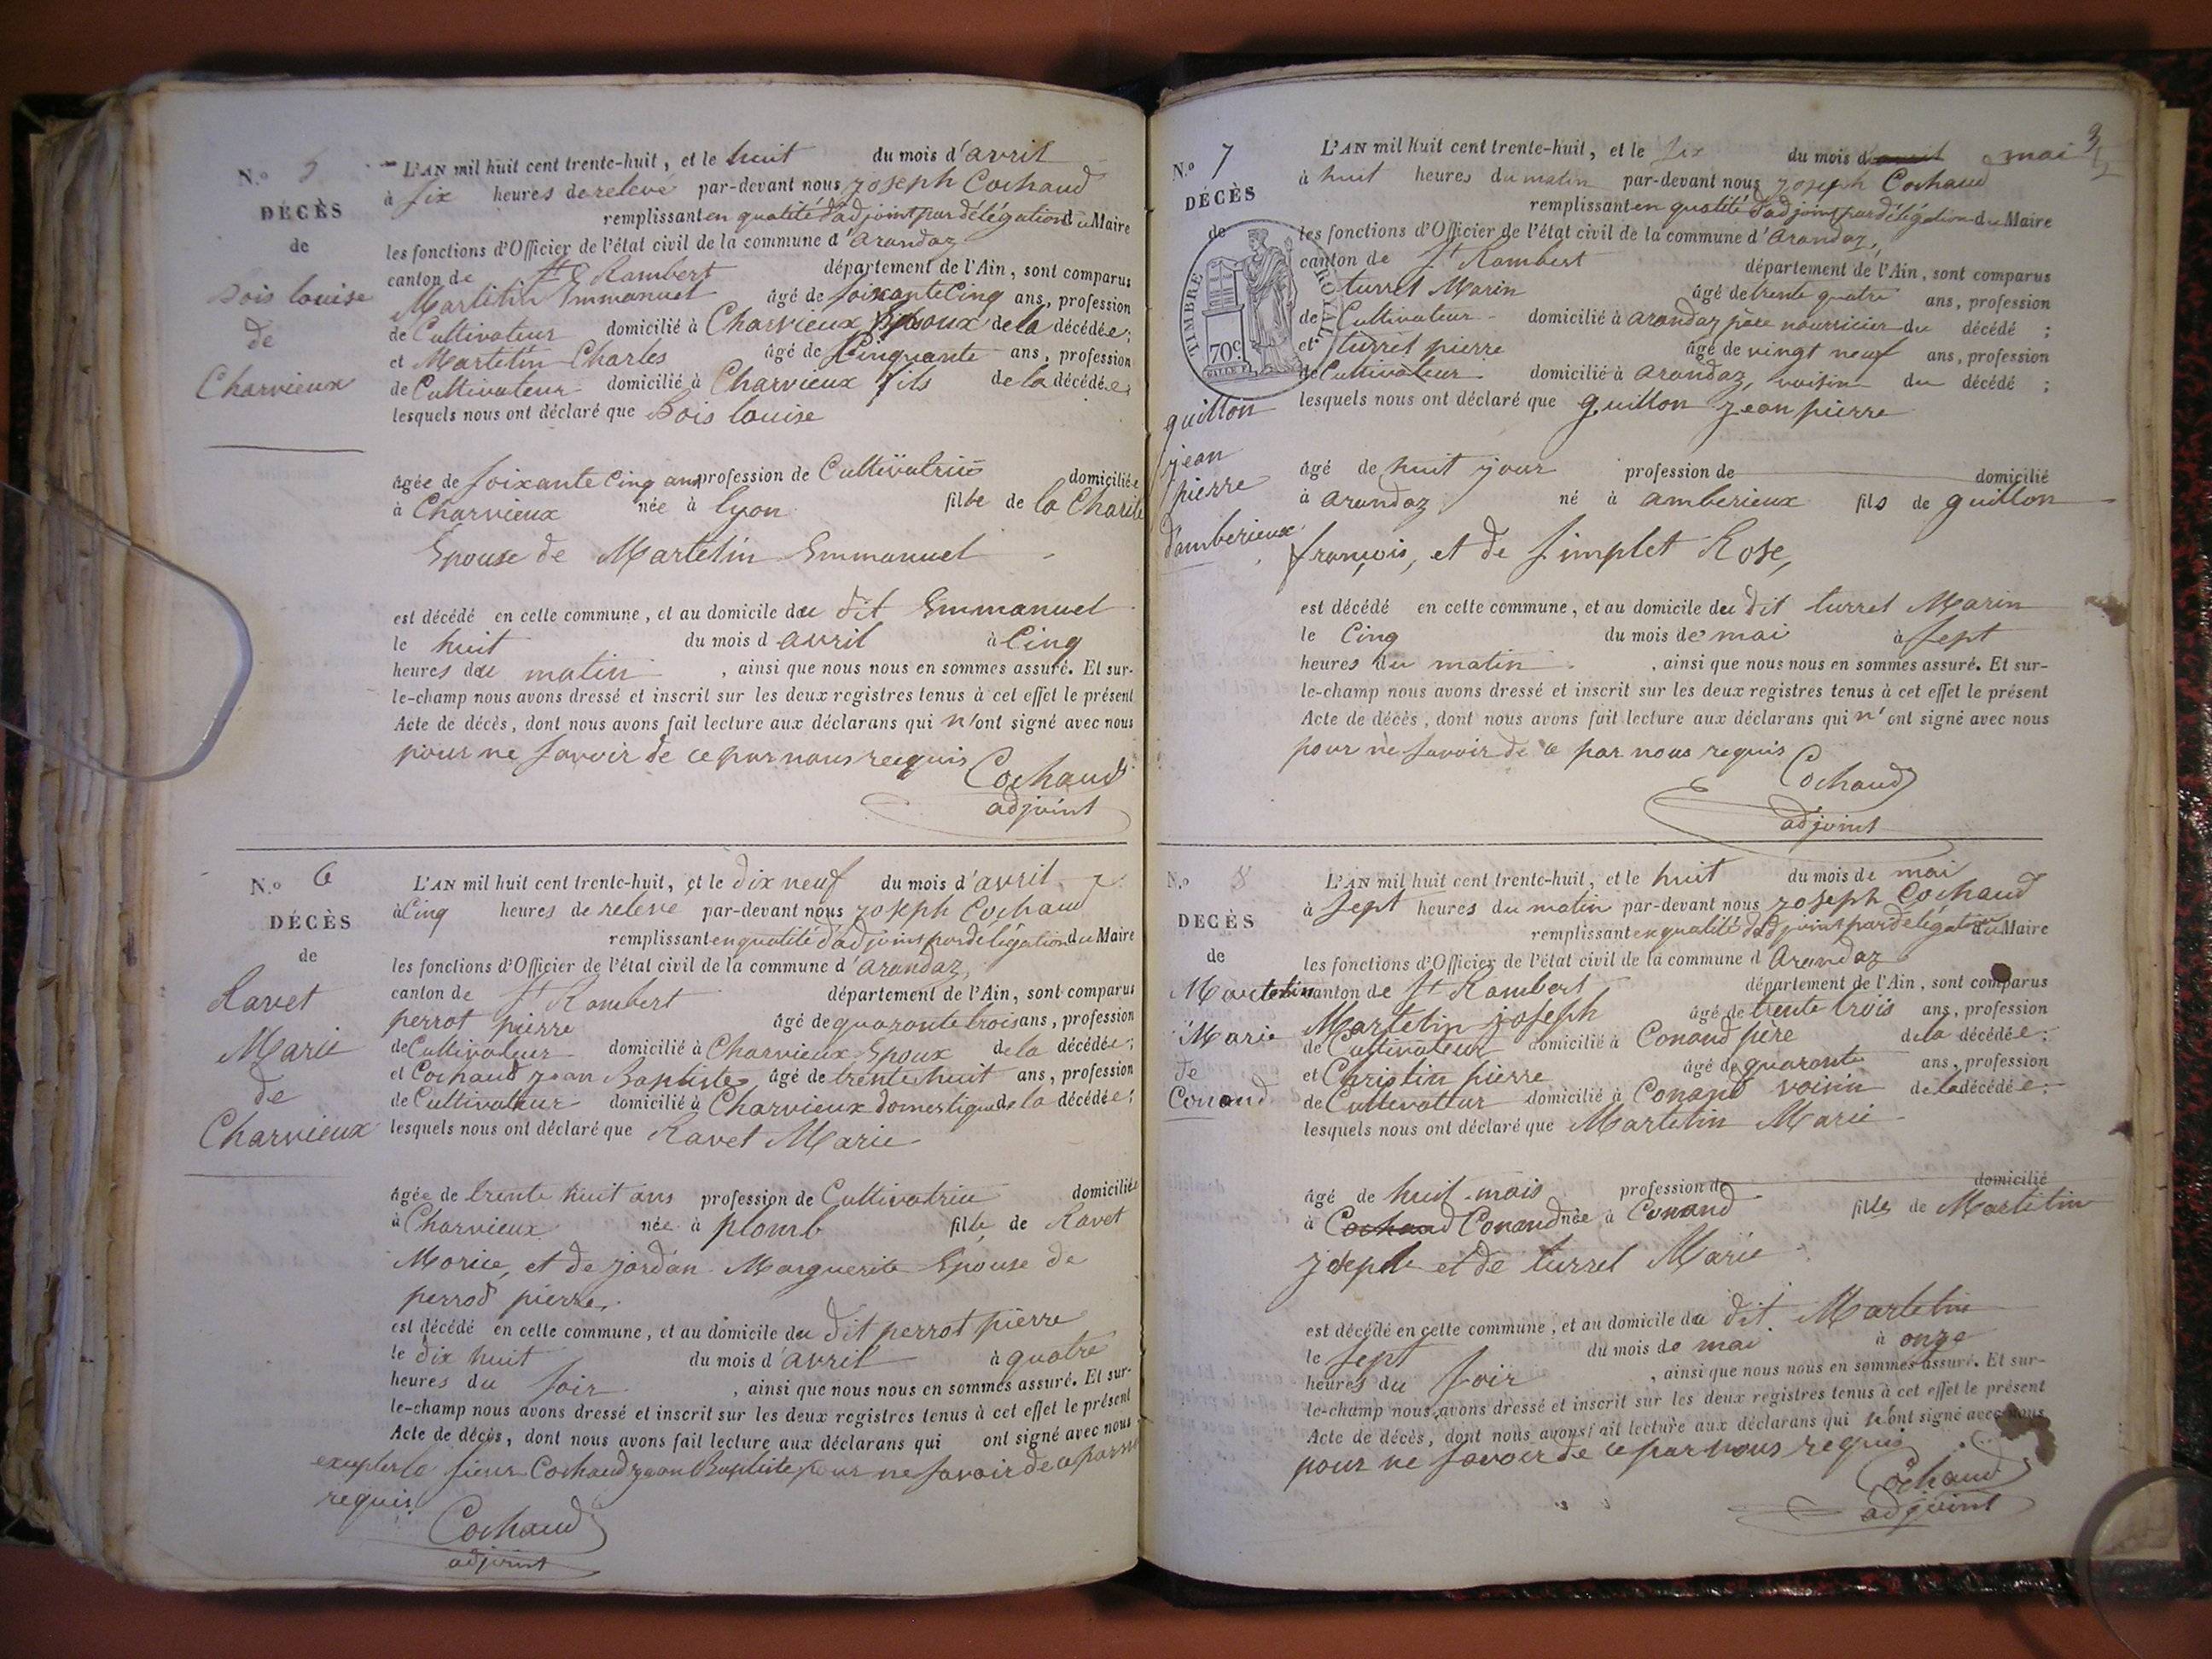 N.o 5
DÉCÈS
de
Bois louise
de
Charvieux
L'AN mil huit cent trente-huit, et le huit du mois d'avril
à six heures de relevé par-devant nous joseph Cochaud
remplissant en qualité d'adjoint par délégation du Maire
les fonctions d'Officier de l'état civil de la commune d'arandaz
canton de St Rambert département de l'Ain, sont comparus
Martelin Emmanuel âgé de soixante Cinq ans, profession
de Cultivateur domicilié à Charvieux Epoux de la décédée;
et Martelin Charles âgé de Cinquante ans, profession
de Cultivateur domicilié à Charvieux fils de la décédée;
lesquels nous ont déclaré que Bois louise
âgée de soixante Cinq ans profession de Cultivatrice domiciliée
à Charvieux née à lyon fille de la Charité
Epouse de Martelin Emmanuel
est décédé en cette commune, et au domicile du dit Emmanuel
le huit du mois d avril à Cinq
heures du matin, ainsi que nous nous en sommes assuré. Et sur-
le-champ nous avons dressé et inscrit sur les deux registres tenus à cet effet le présent
Acte de décès, dont nous avons fait lecture aux déclarans qui n'ont signé avec nous
pour ne savoir de ce par nous recquis
Cochaud
adjoint
N.o 6
DÉCÈS
de
Ravet
Marie
de
Charvieux
L'AN mil huit cent trente-huit, et le dix neuf du mois d'avril
à Cinq heures de relevé par-devant nous joseph Cochaud
remplissant en qualité d'adjoint par délégation du Maire
les fonctions d'Officier de l'état civil de la commune d'arandaz,
canton de St Rambert département de l'Ain, sont comparus
perrot pierre âgé de quarante trois ans, profession
de Cultivateur domicilié à Charvieux Epoux de la décédée;
et Cochaud jean Baptiste âgé de trente huit ans, profession
de Cultivateur domicilié à Charvieux domestique de la décédée;
lesquels nous ont déclaré que Ravet Marie
âgée de trente huit ans profession de Cultivatrice domiciliée
à Charvieux née à plomb fille de Ravet
Morice, et de jordan Marguerite Epouse de
perrod pierre,
est décédé en cette commune, et au domicile du dit perrot pierre
le dix huit du mois d'avril à quatre
heures du soir, ainsi que nous nous en sommes assuré. Et sur-
le-champ nous avons dressé et inscrit sur les deux registres tenus à cet effet le présent
Acte de décès, dont nous avons fait lecture aux déclarans qui ont signé avec nous
exepter le sieur Cochaud jean Baptiste pour ne savoir de ce par nous
requis
Cochaud
adjoint
3
N.o 7
DÉCÈS
de
TIMBRE ROYAL
70c
guillon
jean
pierre
d'amberieux
L'AN mil huit cent trente-huit, et le six du mois d avril mai
à huit heures du matin par-devant nous joseph Cochaud
remplissant en qualité d'adjoint par délégation du Maire
les fonctions d'Officier de l'état civil de la commune d'arandaz,
canton de St Rambert département de l'Ain, sont comparus
turrel Marin âgé de trente quatre ans, profession
de Cultivateur domicilié à arandaz père nourricier du décédé;
et turrel pierre âgé de vingt neuf ans, profession
de Cultivateur domicilié à arandaz, voisin du décédé;
lesquels nous ont déclaré que guillon jean pierre
âgé de huit jour profession de domicilié
à arandaz né à amberieux fils de guillon
françois, et de simplet Rose,
est décédé en cette commune, et au domicile du dit turrel Marin
le Cinq du mois de mai à sept
heures du matin, ainsi que nous nous en sommes assuré. Et sur-
le-champ nous avons dressé et inscrit sur les deux registres tenus à cet effet le présent
Acte de décès, dont nous avons fait lecture aux déclarans qui n'ont signé avec nous
pour ne savoir de ce par nous requis
Cochaud
adjoint
N.o 8
DÉCÈS
de
Martelin
Marie
de
Conand
L'AN mil huit cent trente-huit, et le huit du mois de mai
à sept heures du matin par-devant nous joseph Cochaud
remplissant en qualité d'adjoint par délégation du Maire
les fonctions d'Officier de l'état civil de la commune d Arandaz
canton de St Rambert département de l'Ain, sont comparus
Martelin joseph âgé de trente trois ans, profession
de Cultivateur domicilié à Conand père de la décédée;
et Christin pierre âgé de quarante ans, profession
de Cultivateur domicilié à Conand voisin de la décédée;
lesquels nous ont déclaré que Martelin Marie
âgé de huit mois profession de domicilié
à Cochaud Conand née à Conand fille de Martelin
joseph et de turrel Marie
est décédé en cette commune, et au domicile du dit Martelin
le sept du mois de mai à onze
heures du soir, ainsi que nous nous en sommes assuré. Et sur-
le-champ nous avons dressé et inscrit sur les deux registres tenus à cet effet le présent
Acte de décès, dont nous avons fait lecture aux déclarans qui n'ont signé avec nous
pour ne savoir de ce par nous requis
Cochaud
adjoint